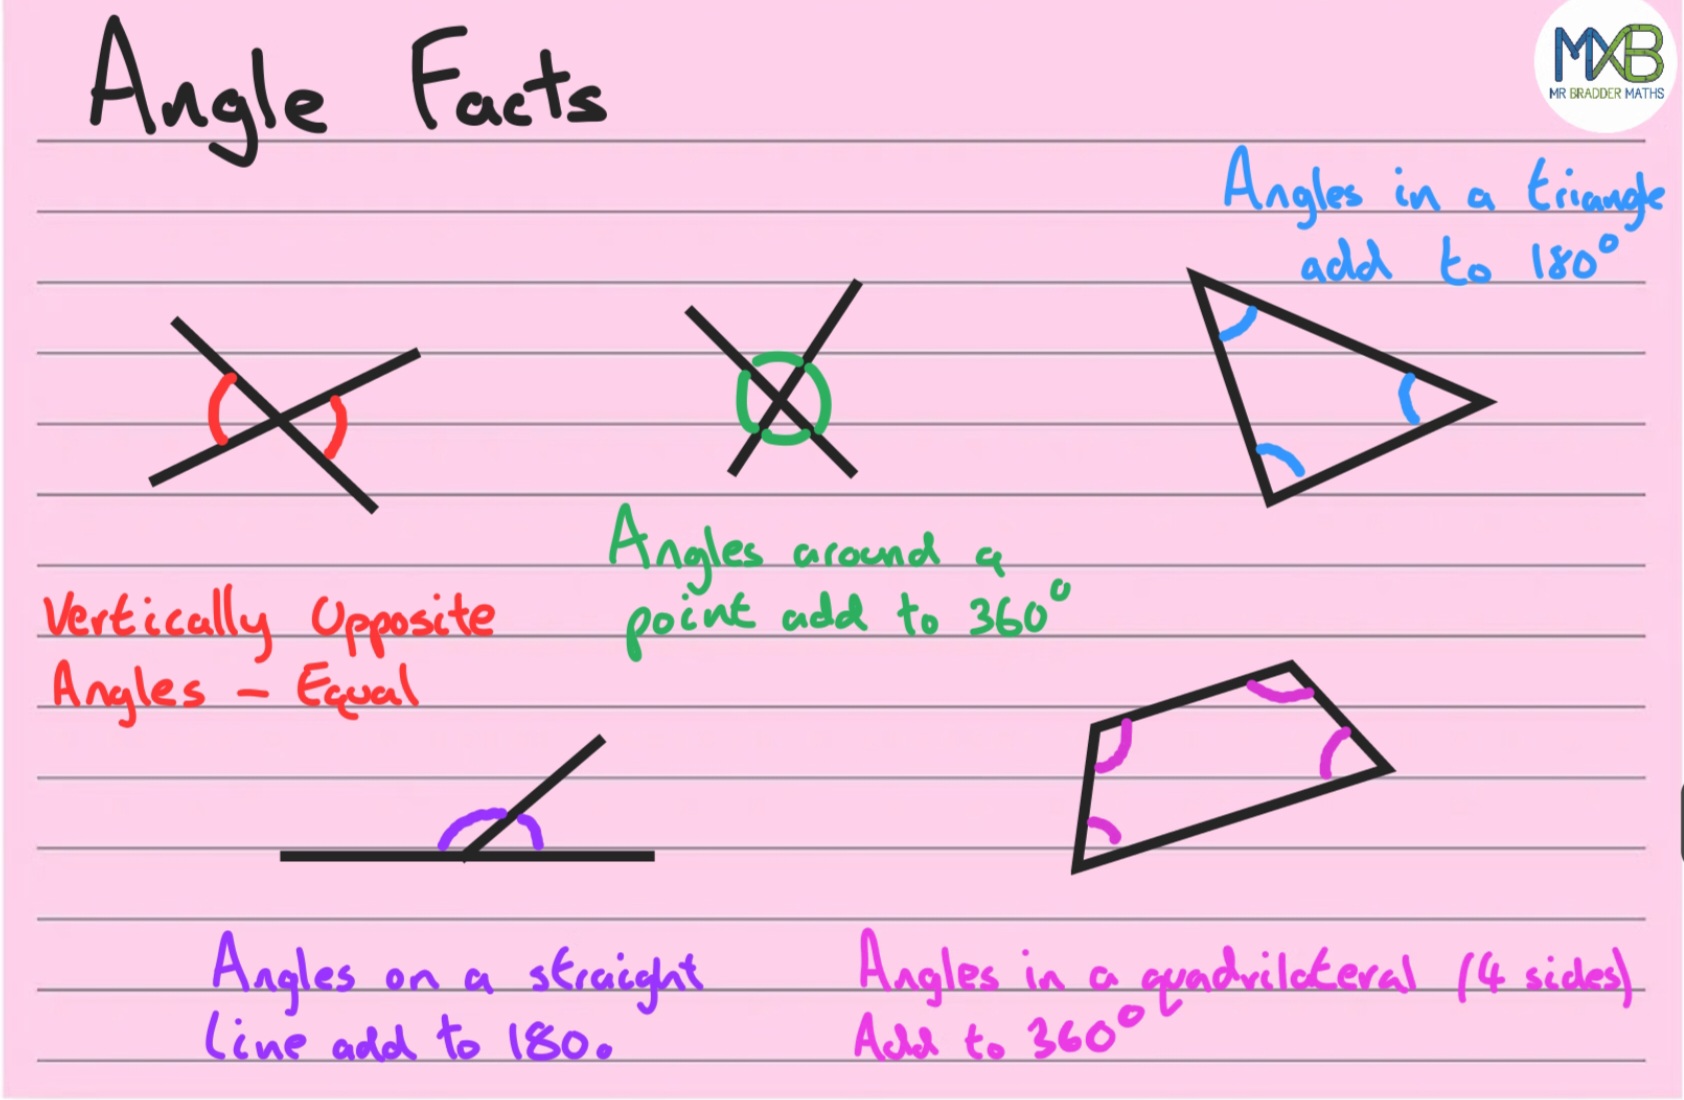 Angle Facts
MXB
MR BRADDER MATHS
Angles in a triangle
add to 180°
Angles around a
point add to 360°
Vertically Opposite
Angles - Equal
Angles on a straight
Line add to 180.
Angles in a quadrilateral (4 sides)
Add to 360°